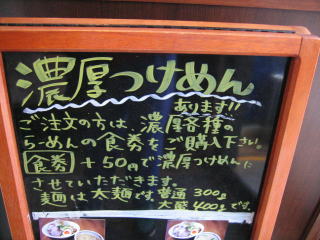 濃厚つけめん
あります!!
ご注文の方は、濃厚各種の
らーめんの食券を、ご購入下さい。
食券 + 50円で濃厚つけめんに
させていただきます。
麺は太麺です。普通 300g
大盛 400gです。